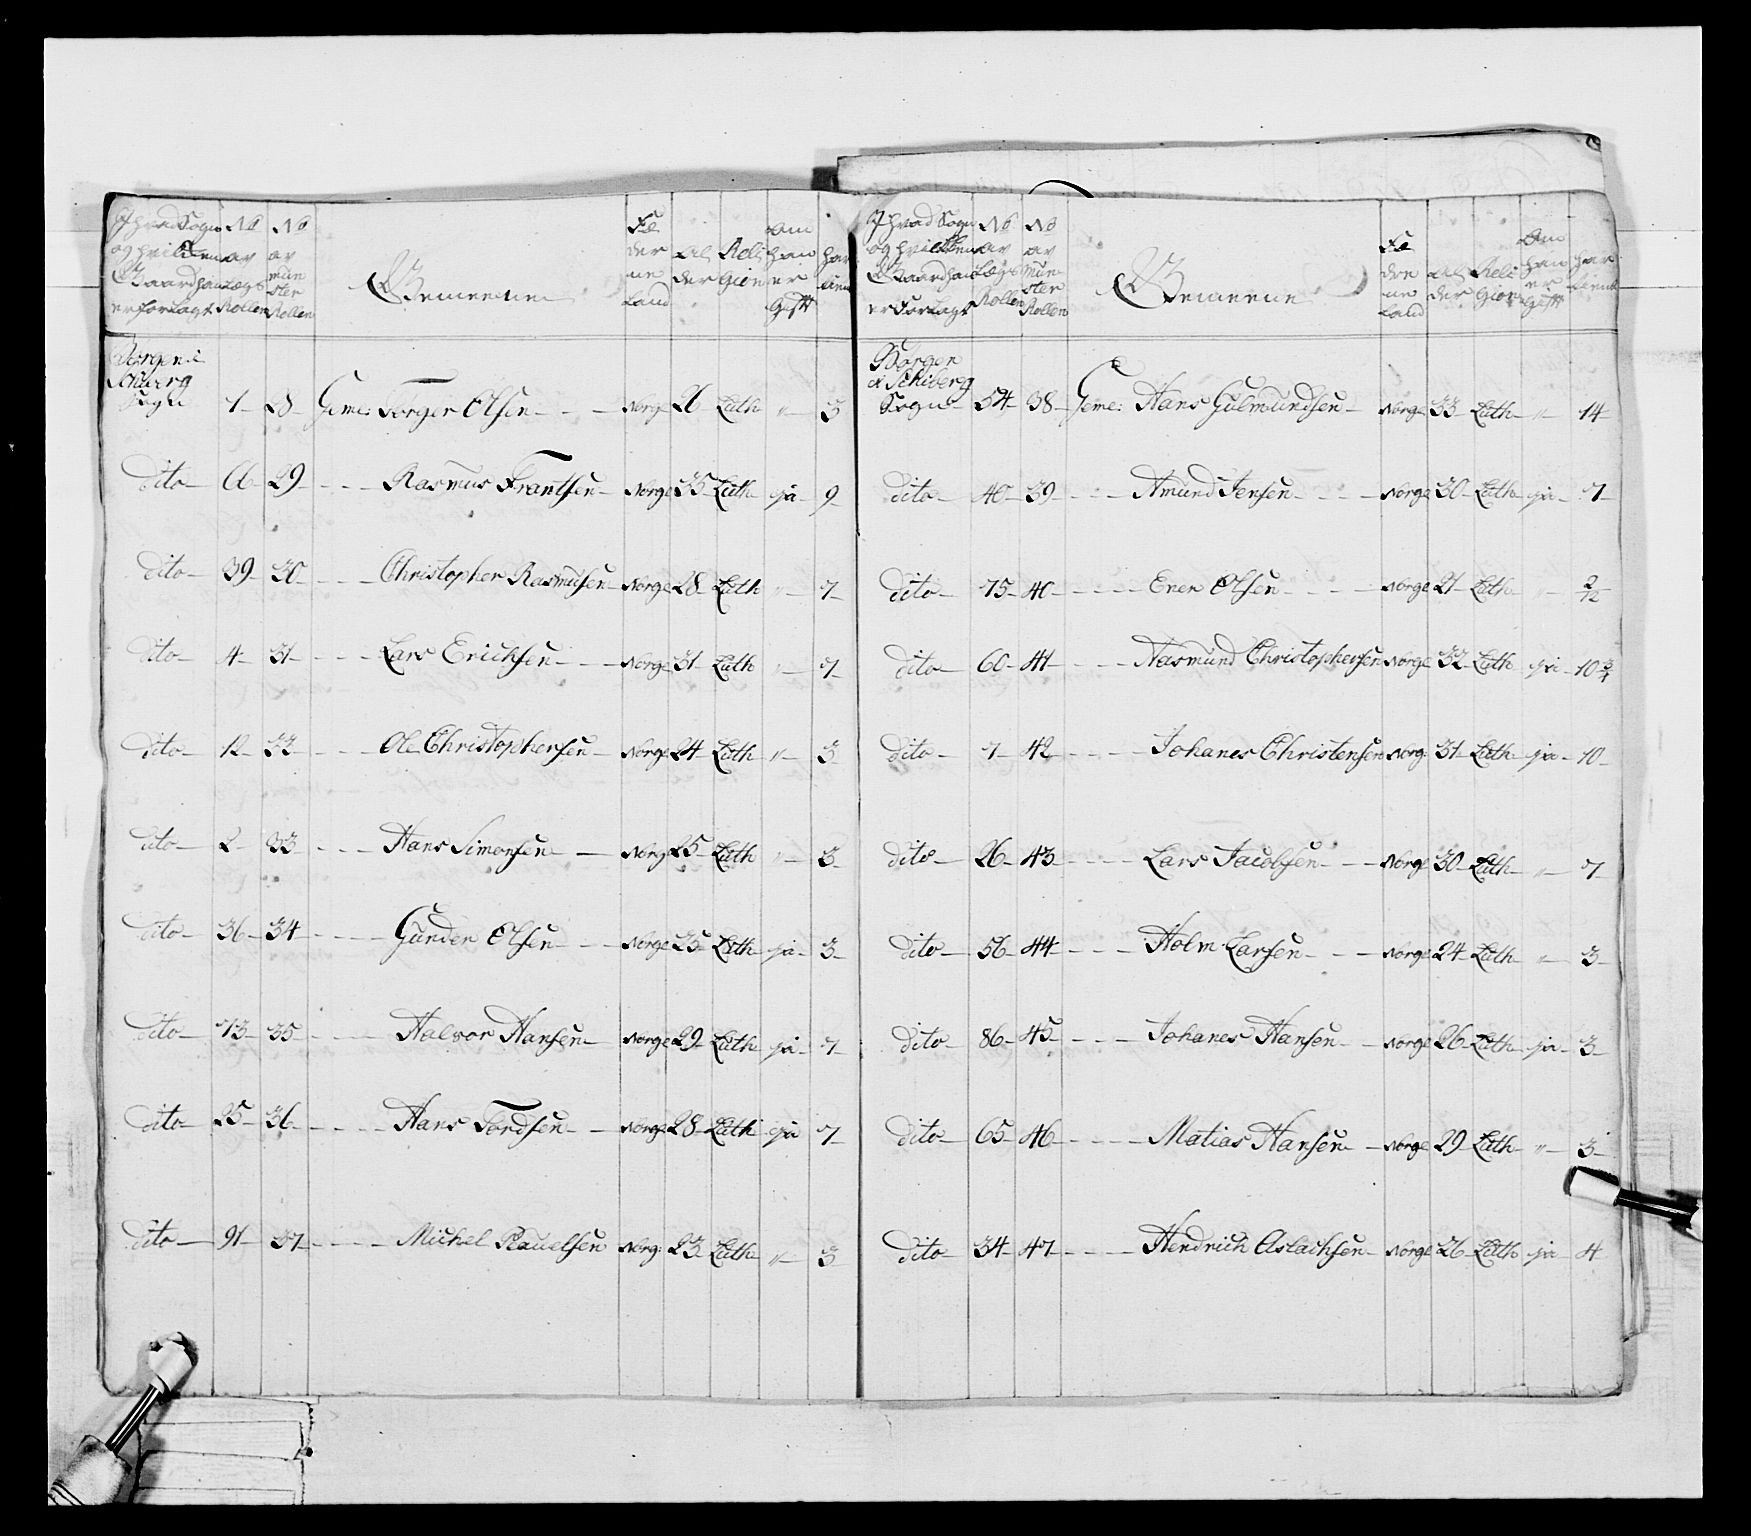 J hvad Sogn
og hvilken
Gaard han
er forlagt
No
av
Lægs
Rollen
No
av
mun
ster
Rollen
Gemeene
Fæ
der
ne
Land
Al
der
Reli
Gion
Om
han
er
Gift
har
tient
Sogn 7 28 Geme: Torger Olsen Norge 26 Luth " 3
dito 66 29 Rasmus Frantsen Norge 35 Luth ja 9
dito 39 30 Christopher Rasmusen Norge 28 Luth " 7
dito 4 31 Lars Erichsen Norge 31 Luth " 7
dito 12 32 Ole Christophersen Norge 24 Luth " 3
dito 2 33 Hans Simonsen Norg 25 Luth " 3
dito 36 34 Gunder Olsen Norge 25 Luth ja 3
dito 73 35 Halvor Hansen Norge 29 Luth ja 7
dito 25 36 Hans Tordsen Norge 28 Luth ja 7
dito 91 37 Michel Pauelsen Norg 23 Luth " 3
J hvad Sogn
og hvilken
Gaard han
er Forlagt
No
av
Lægs
Rollen
No
av
mun
ster
Rollen
Gemeene
Fæ
dre
ne
Land
Al
der
Reli
Gion
Om
han
er
Gift
har
tient
Borgen
i Schiberg
Sogn 54 38 Geme: Hans Gulmundsen Norge 33 Luth " 14
dito 40 39 Amund Jensen Norge 30 Luth ja 7
dito 75 40 Ener Olsen Norge 21 Luth " 2/12
dito 60 41 Aasmund Christophersen Norge 32 Luth ja 10 3/4
dito 7 42 Johanes Christensen Norg 31 Luth ja 10
dito 26 43 Lars Jacobsen Norge 30 Luth " 7
dito 56 44 Holm Larsen Norge 24 Luth " 3
dito 86 45 Johanes Hansen Norge 26 Luth ja 3
dito 65 46 Matias Hansen Norge 29 Luth " 3
dito 34 47 Hendrich Aslachsen Norge 26 Luth ja 4